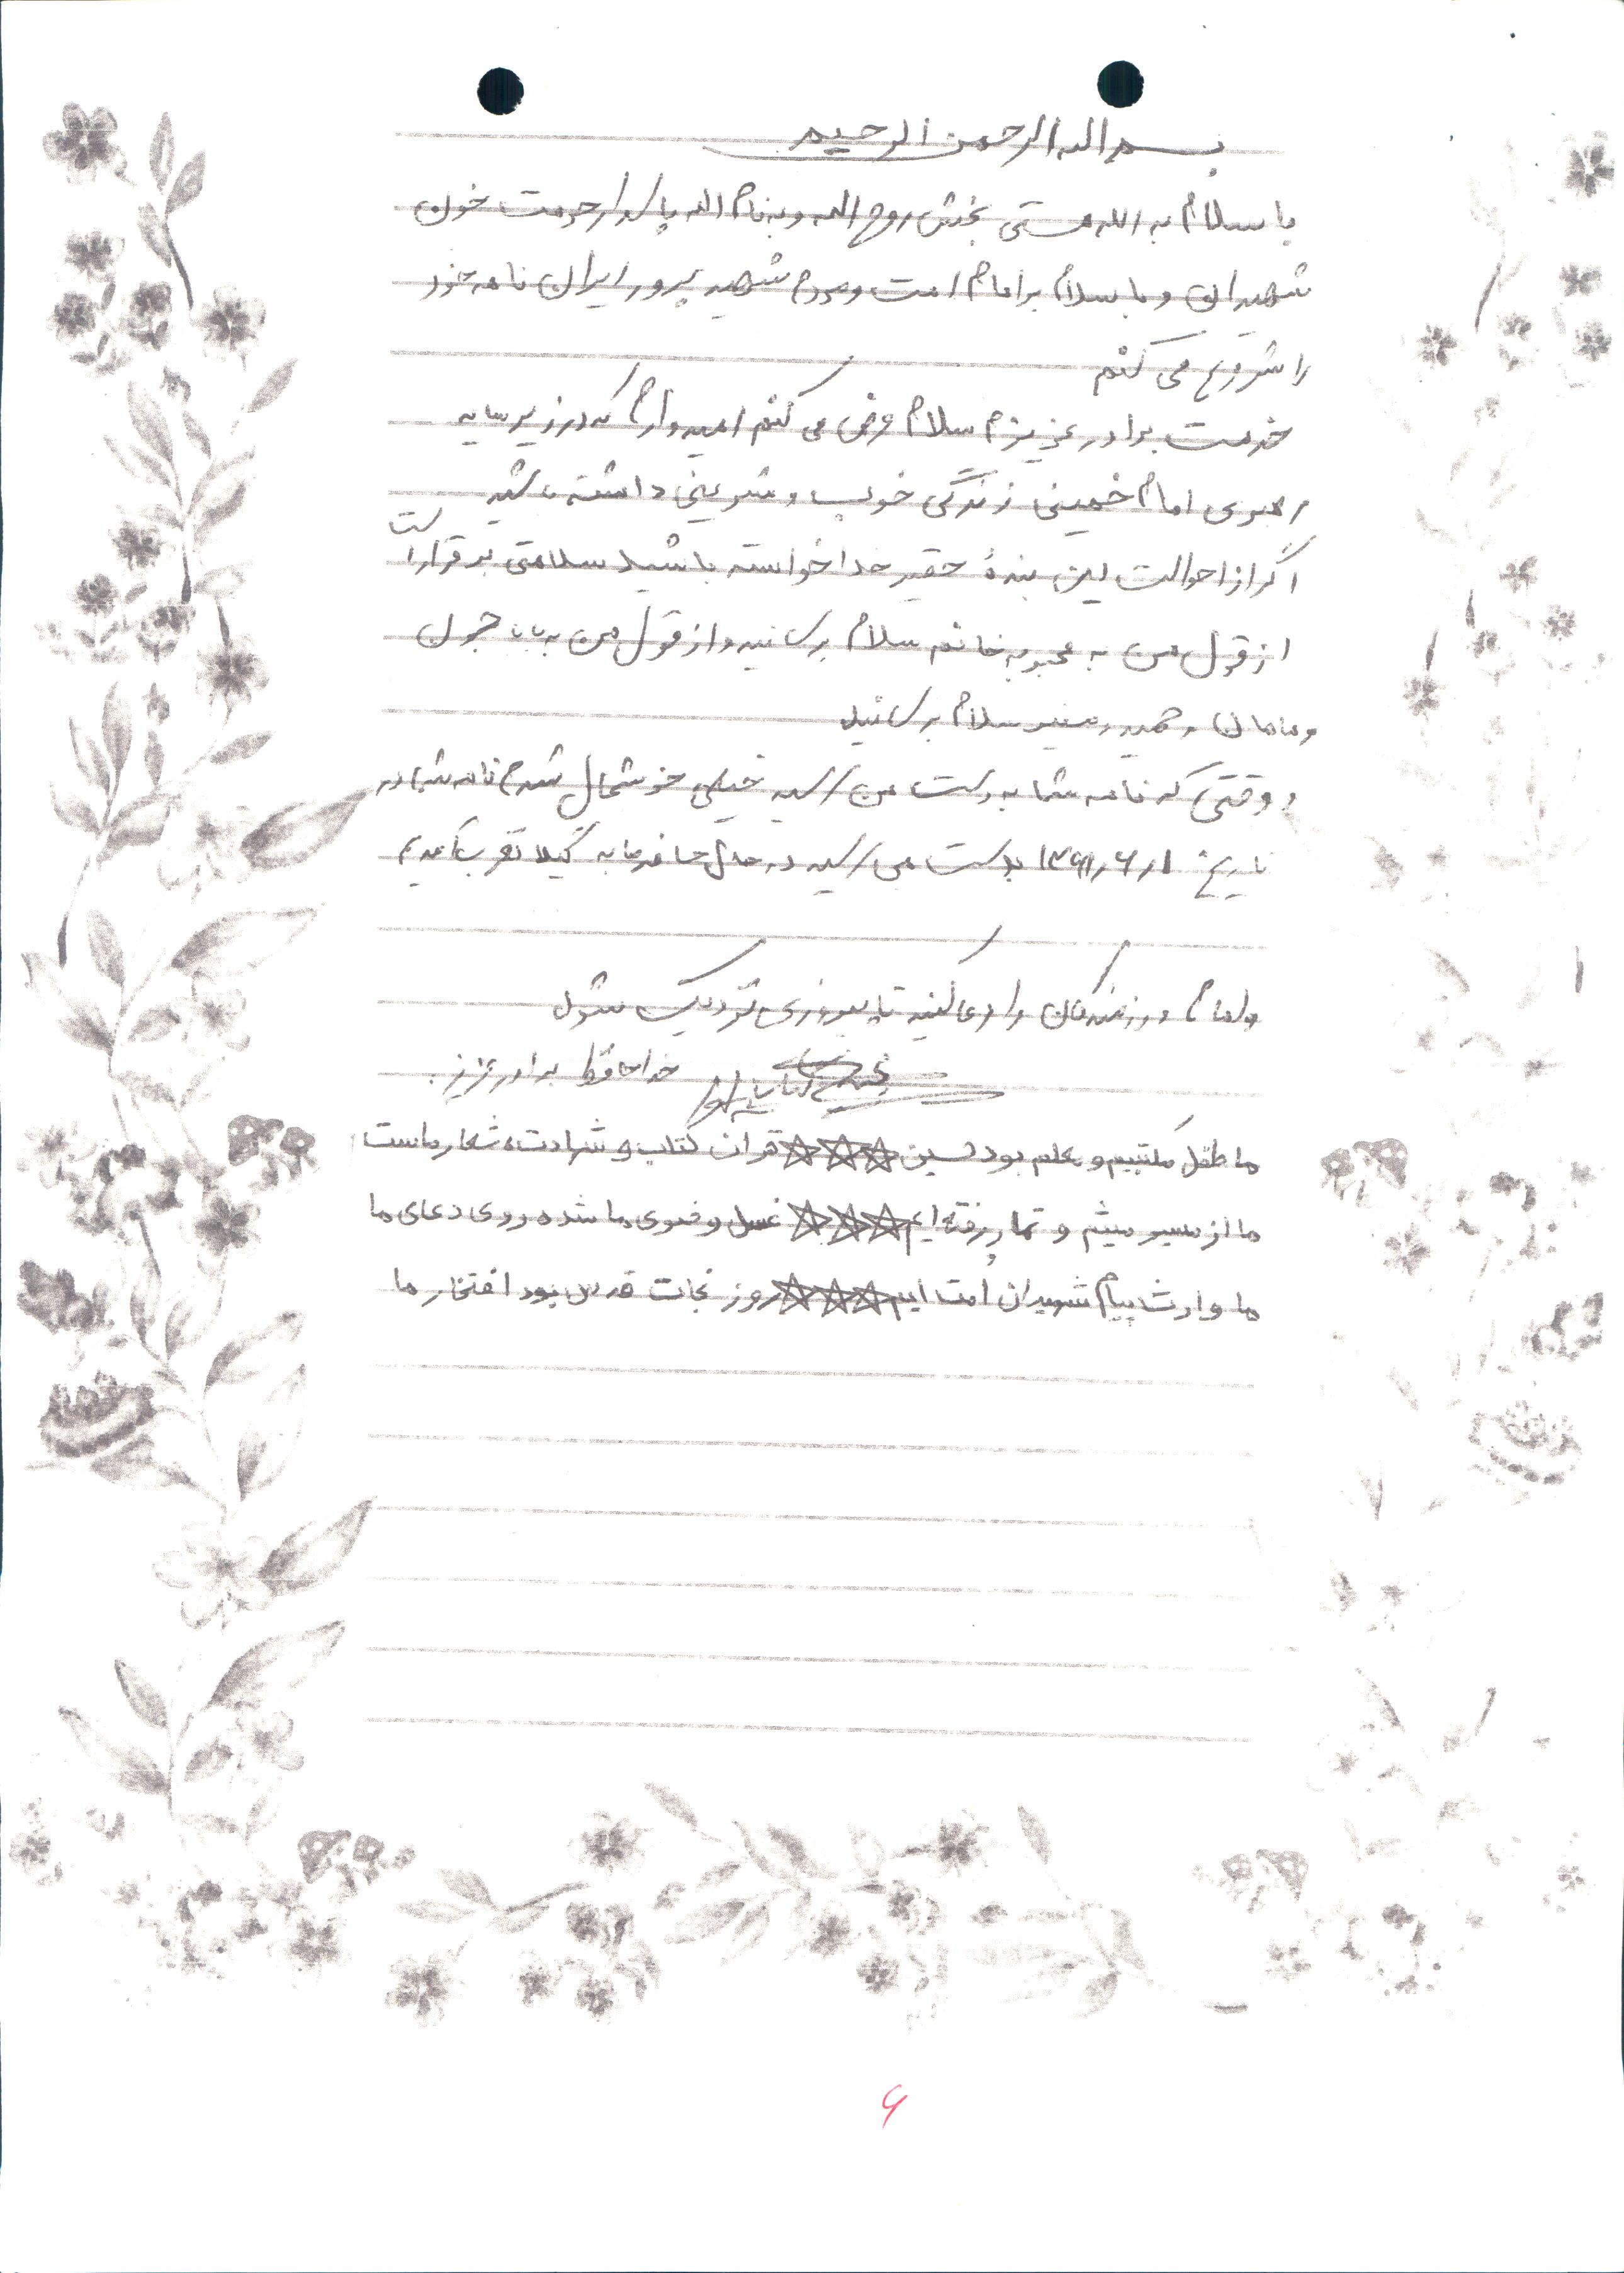 بسم الله الرحمن الرحیم
با سلام به الله هستی بخش روح الله و بنام الله پاسدار حرمت خون
شهیدان و با سلام بر امام امت و مردم شهید پرور ایران نامه خود
را شروع می کنم
خدمت برادر عزیزم سلام عرض می کنم امیدوارم که در زیر سایه
رهبری امام خمینی زندگی خوب و شیرینی داشته باشید
اگر از احوالات این بندهٔ حقیر خدا خواسته باشید سلامتی برقرار است
از قول من به محبوبه خانم سلام برسانید و از قول من به بابا جون
و مامان و حمید و سلام برسانید
و وقتی که نامه شما بدست من رسید خیلی خوشحال شدم نامه شما در
تاریخ ۱۳۶۱٫۶٫۱ بدست من رسید در حال حاضر ما به گیلانغرب آمدیم
و امام و رزمندگان را دعا کنید تا پیروزی نزدیک شود
خداحافظ برادر عزیز.
ما طفل مکتبیم و معلم بود حسین ☆☆☆ قران کتاب و شهادت شعار ماست
ما از مسیر میثم و تمار رفته ایم ☆☆☆ غسل وضوی ما شده روی دعای ما
ما وارث پیام شهیدان امت ایم ☆☆☆ روز نجات قدس بود افتخار ما
۶